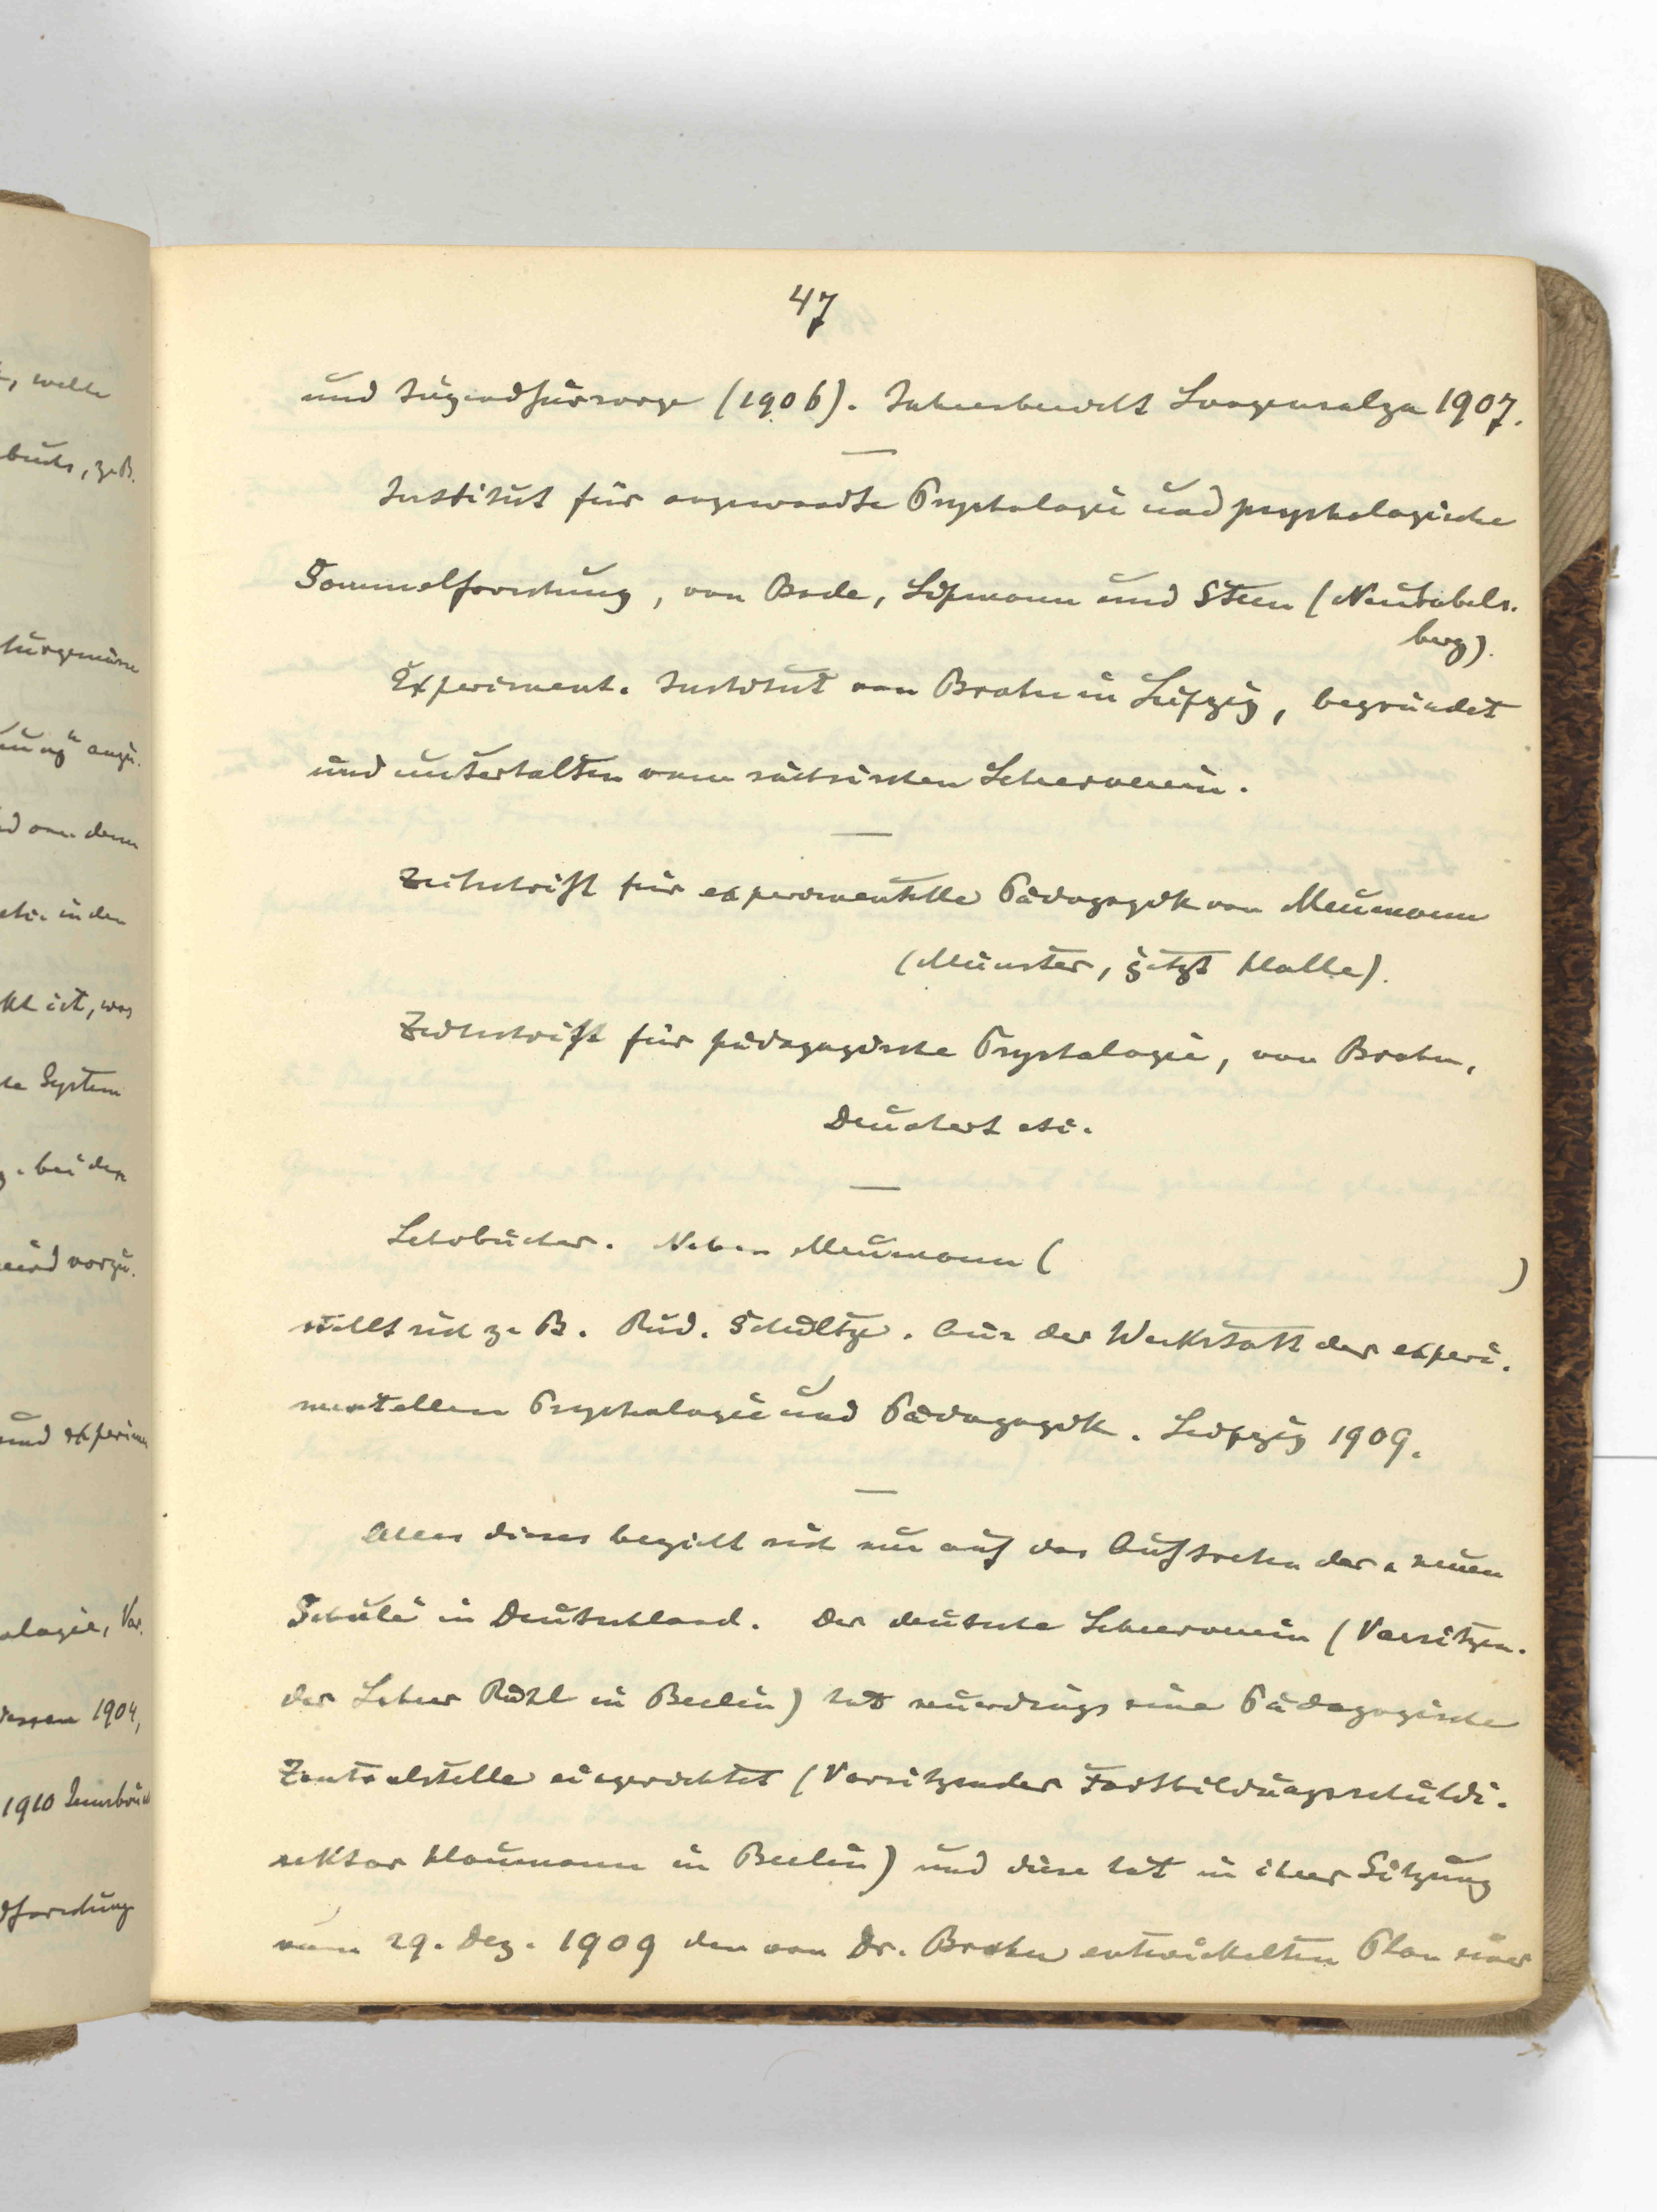 47
und Jugendfürsorge (1906). Jahresbericht Langensalza 1907.
Institut für angewandte Psychologie und psychologische
Sammelforschung, von Bode, Lipmann und Stern (Neubabels-
berg).
Experiment. Institut von Brahn in Leipzig, begründet
und unterhalten vom sächsischen Lehrerverein.
Zeitschrift für experimentelle Pädagogik von Meumann
(Münster, jetzt Halle).
Zeitschrift für pädagogische Psychologie, von Brahn,
Deuchert etc.
Lehrbücher. Neben Meumann ( )
stellt sich z. B. Rud. Schultze. Aus der Werkstatt der experi-
mentellen Psychologie und Pädagogik. Leipzig 1909.
Alles dieses bezieht sich nur auf das Auftreten der neuen
Schule in Deutschland. Der deutsche Lehrerverein (Vorsitzen-
der Lehrer Röhl in Berlin) hat neuerdings eine Pädagogische
Zentralstelle eingerichtet (Vorsitzender Fortbildungsschuldi-
rektor Haumann in Berlin) und diese hat in ihrer Sitzung
vom 29. Dez. 1909 den von Dr. Brahn entwickelten Plan einer
, welche
buchs, z. B.
turgemässe
ung" anzu-
d von dem
etc. in den
kt ist, was
te System
. bei den
wird vorzu-
und experimen
ologie, Vor-
dessen 1904,
1910 Innsbruck
dforschung